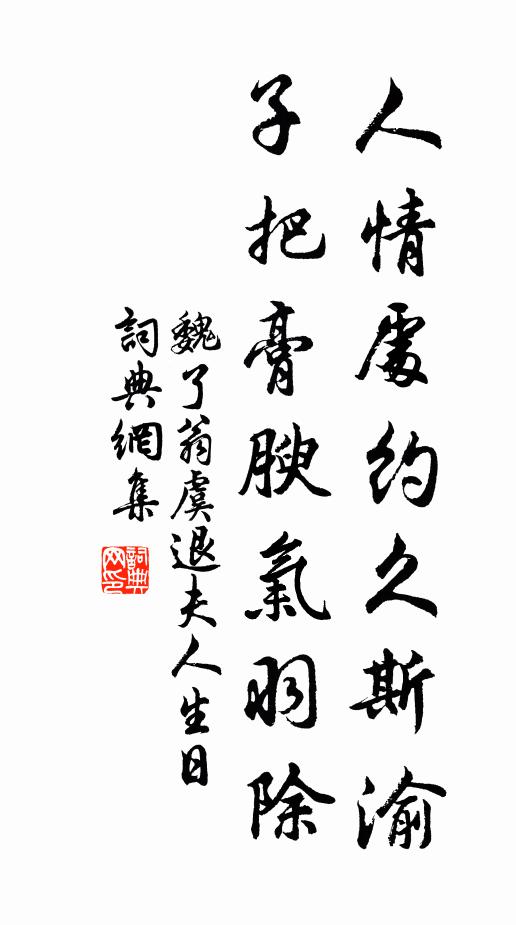 人情處約久斯渝
子把膏腴氣習除
魏了翁虞退夫人生日
詞典網集
詞典网印